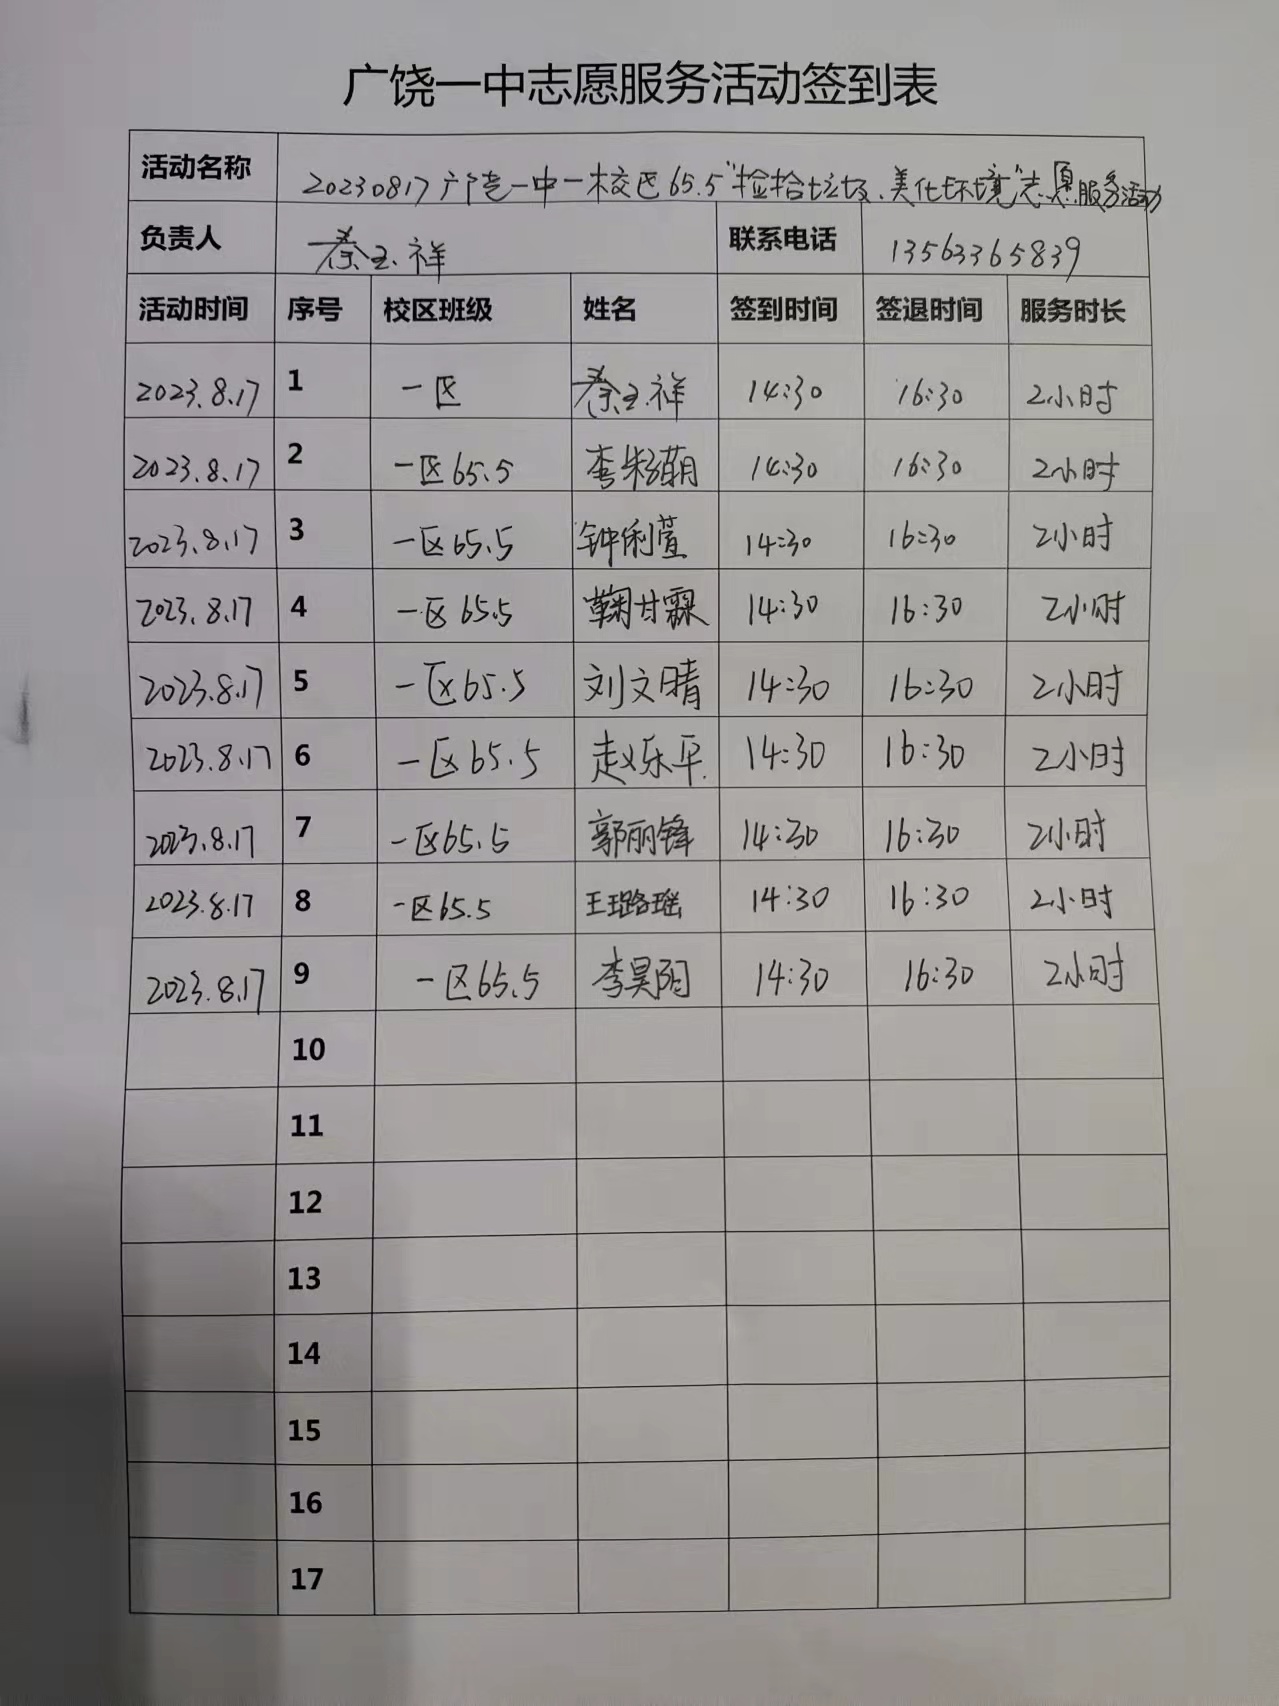 广饶一中志愿服务活动签到表
活动名称 20230817广饶一中一校区65.5"捡拾垃圾、美化环境"志愿服务活动
负责人 秦玉祥 联系电话 13563365839
活动时间 序号 校区班级 姓名 签到时间 签退时间 服务时长
2023.8.17 1 一区 秦玉祥 14:30 16:30 2小时
2023.8.17 2 一区65.5 李 14:30 16:30 2小时
2023.8.17 3 一区65.5 钟俐萱 14:30 16:30 2小时
2023.8.17 4 一区65.5 鞠甘霖 14:30 16:30 2小时
2023.8.17 5 一区65.5 刘文晴 14:30 16:30 2小时
2023.8.17 6 一区65.5 赵乐平 14:30 16:30 2小时
2023.8.17 7 一区65.5 郭丽锋 14:30 16:30 2小时
2023.8.17 8 一区65.5 王璐瑶 14:30 16:30 2小时
2023.8.17 9 一区65.5 李昊阳 14:30 16:30 2小时
10
11
12
13
14
15
16
17